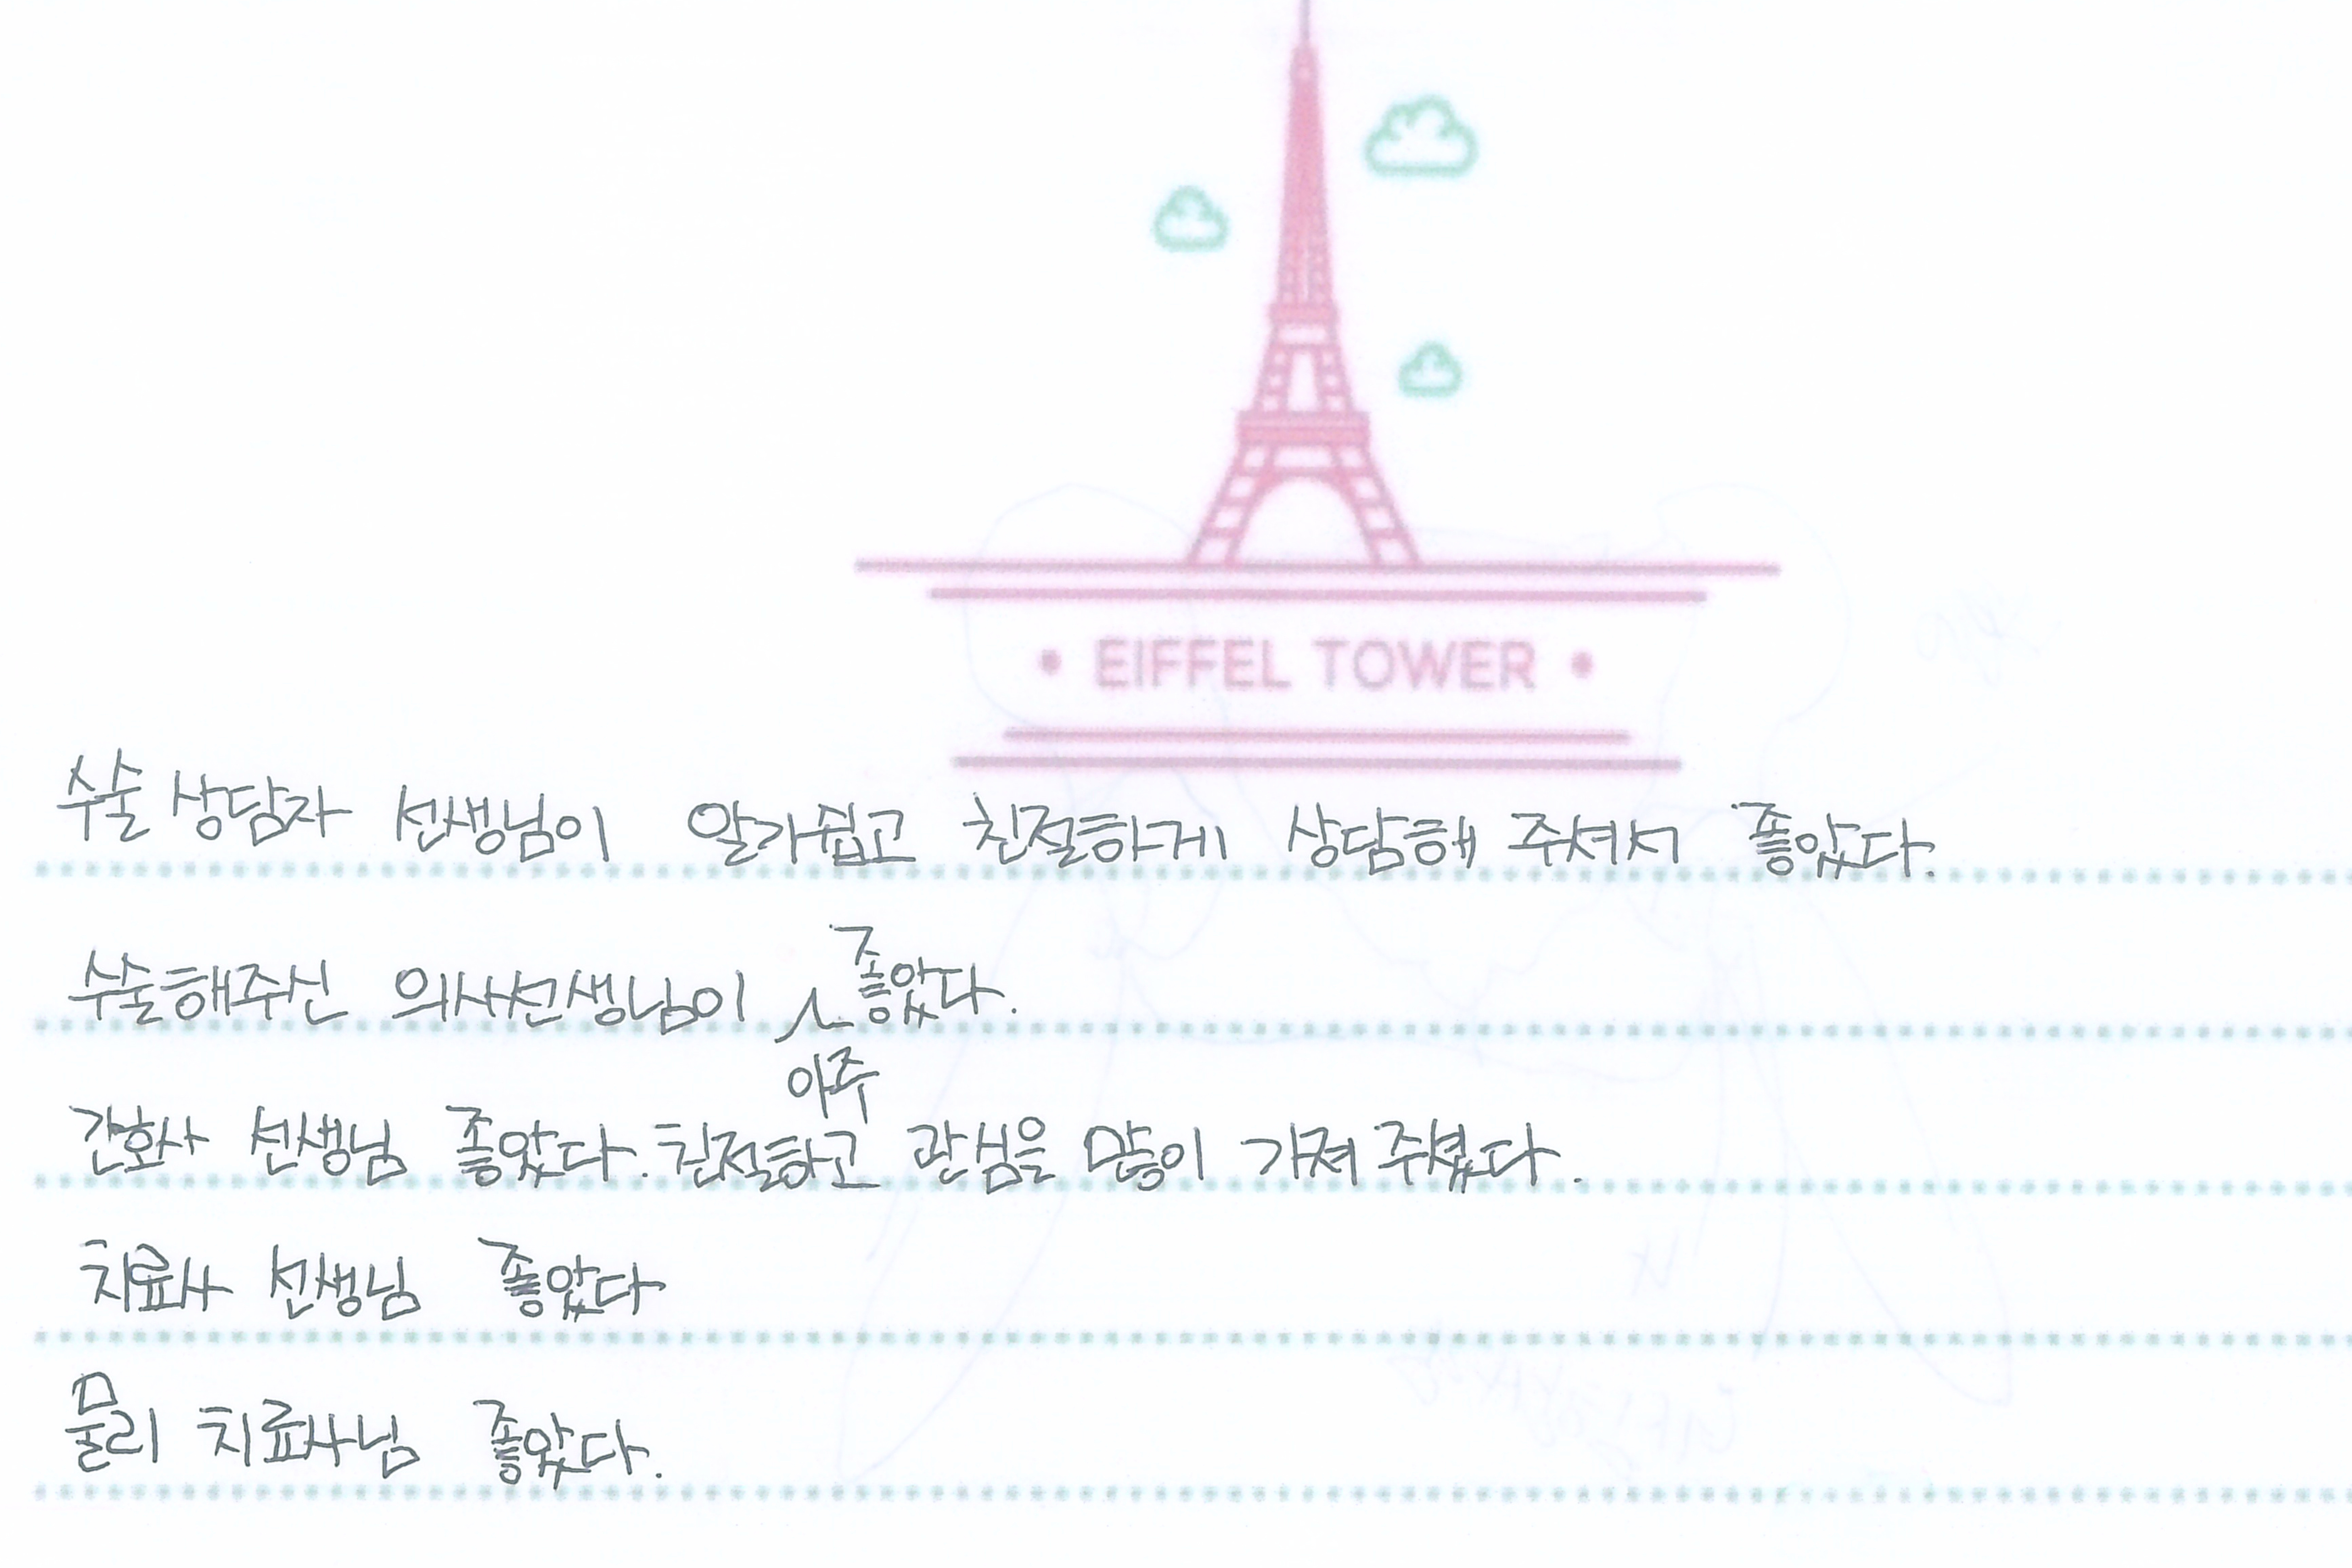 EIFFEL TOWER
수술 상담자 선생님이 알가쉽고 친절하게 상담해 주셔서 좋았다.
수술해주신 의사선생님이 아주 좋았다.
간호사 선생님 좋았다. 친절하고 관심을 많이 가져 주셨다.
치료사 선생님 좋았다
물리 치료사님 좋았다.